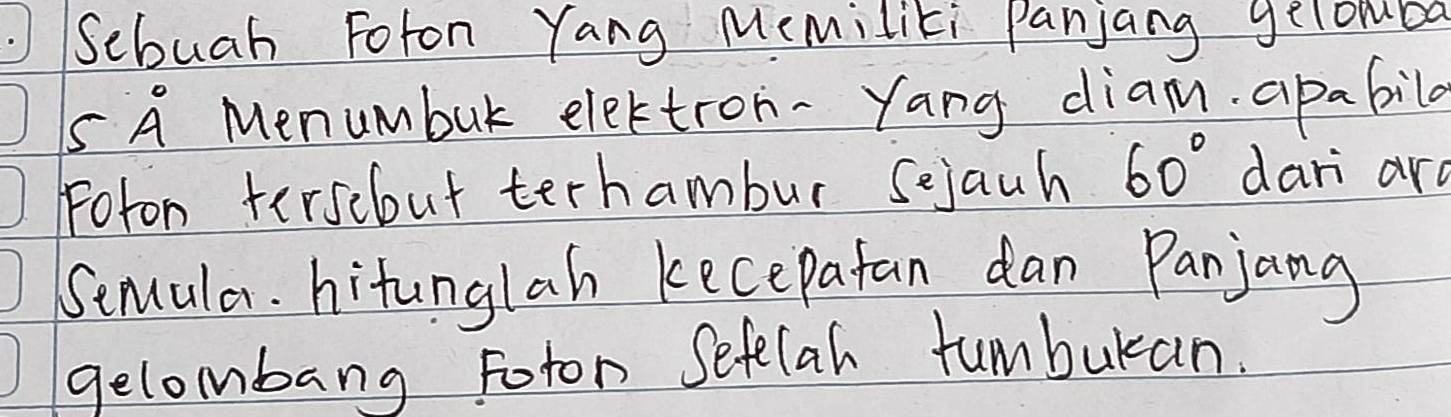 Sebuah Foton Yang Memiliki Panjang gelomba
5 Å Menumbuk elektron- Yang diam. apabila
Foton tersebut terhambur Sejauh 60° dari ara
Semula. hitunglah kecepatan dan Panjang
gelombang Foton Setelah tumbukan.